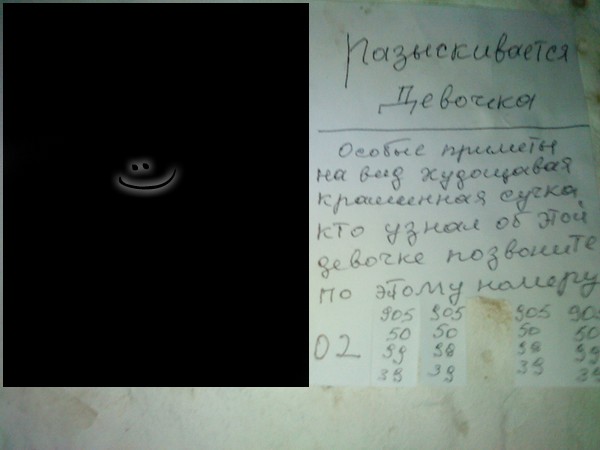 Разыскивается
Девочка
Особые приметы
на вид худощавая
крашенная сучка
кто узнал об этой
девочке позвоните
по этому номеру
02
905 905 905 905
50 50 50 50
39 38 38 39
39 39 39 39